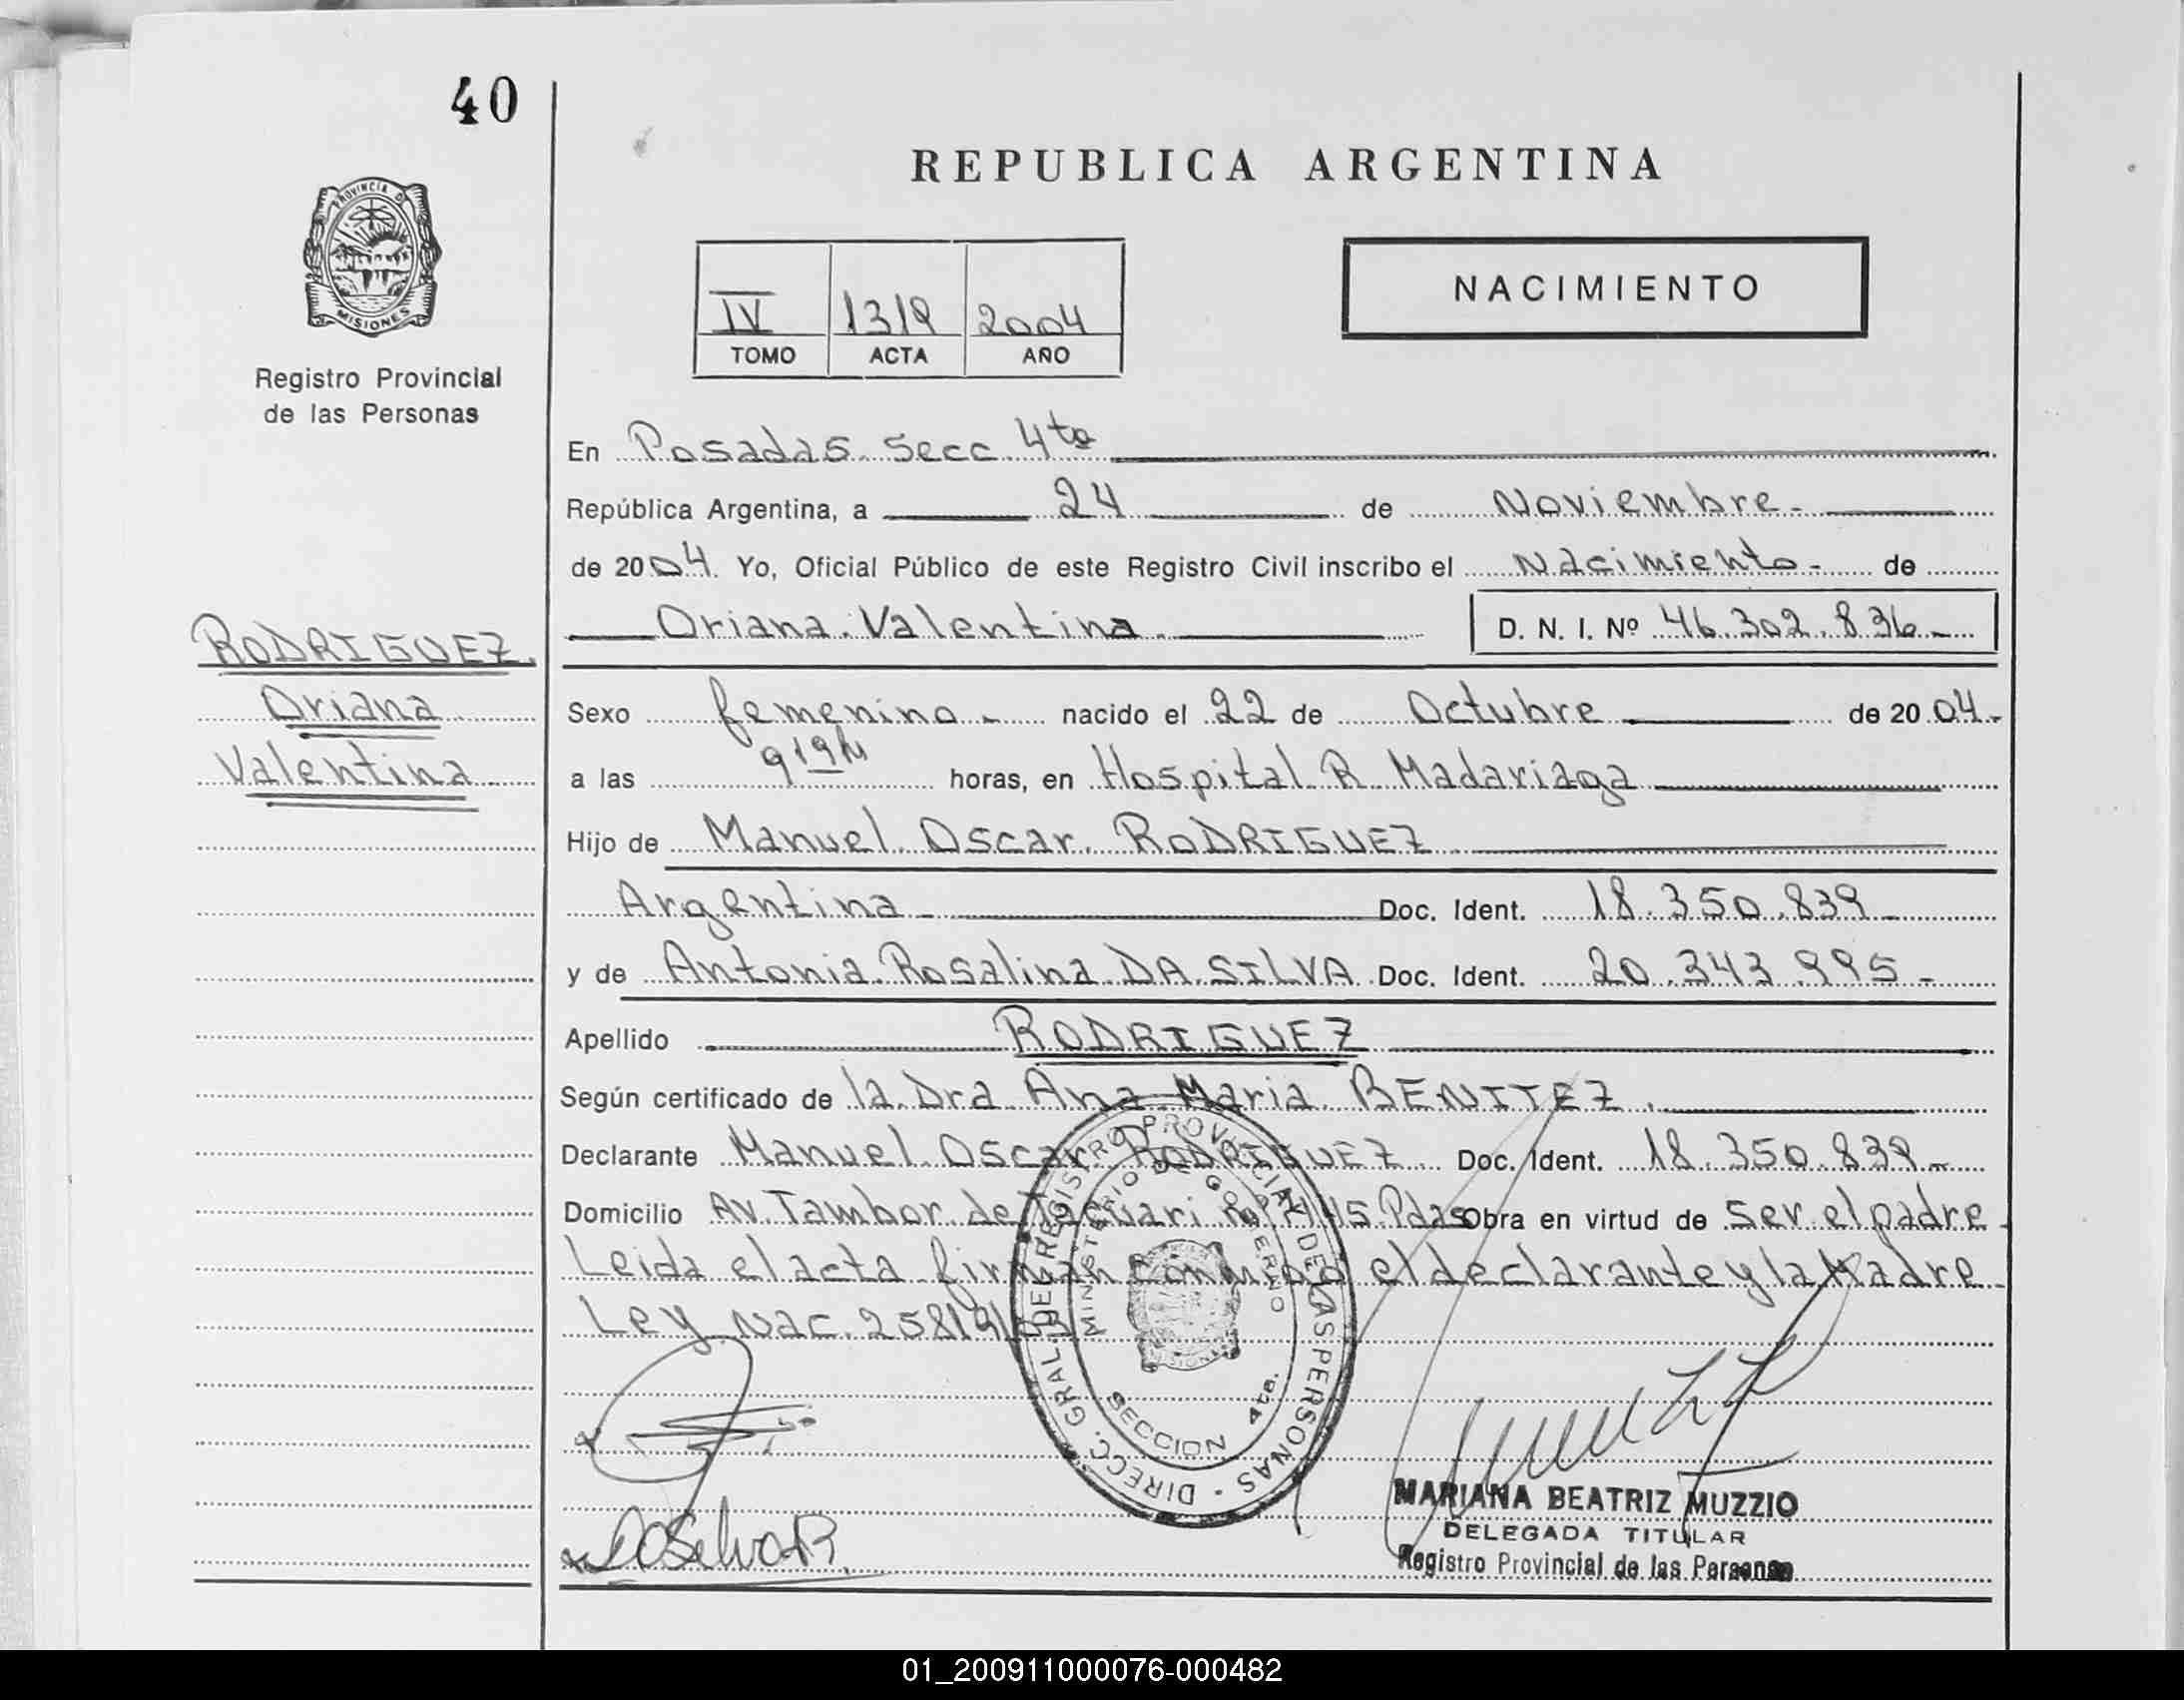 40
REPUBLICA ARGENTINA
PROVINCIA D
MISIONES
Registro Provincial
de las Personas
NACIMIENTO
IV 1319 2004
TOMO ACTA AÑO
En Posadas Secc 4ta
República Argentina, a 24 de Noviembre
de 2004. Yo, Oficial Público de este Registro Civil inscribo el Nacimiento de
Oriana Valentina D. N. I. Nº 46.302.836
RODRIGUEZ
Oriana
Valentina
Sexo femenino nacido el 22 de Octubre de 2004
a las 919 hs horas, en Hospital R Madariaga
Hijo de Manuel Oscar RODRIGUEZ
Argentina Doc. Ident. 18.350.839
y de Antonia Rosalina DA SILVA Doc. Ident. 20.343.995
Apellido RODRIGUEZ
Según certificado de la Dra Ana Maria BENITEZ
Declarante Manuel Oscar RODRIGUEZ Doc. Ident. 18.350.839
Domicilio Av. Tambor de Tacuari Pdas Obra en virtud de Ser el padre
Leida el acta firman conmigo el declarante y la Madre
Ley Nac. 25819/03
DIRECC. GRAL. DEL REGISTRO PROVINCIAL DE LAS PERSONAS
MINISTERIO DE GOBIERNO
MISIONES
SECCION 4ta.
DaSilva R
MARIANA BEATRIZ MUZZIO
DELEGADA TITULAR
Registro Provincial de las Personas
01_200911000076-000482